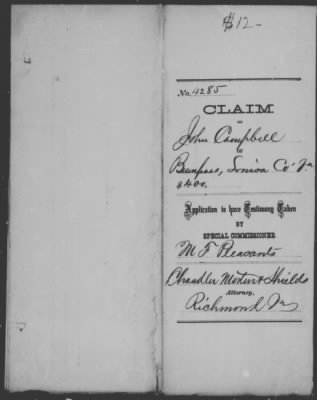 $12-
No. 4285
CLAIM
OF
John Campbell
OF
Bumpass, Louisa Co Va
$400.
Application to have Testimony Taken
BY
SPECIAL COMMISSIONER
M F Pleasants
Chandler Morton & Shields
Attorney,
Richmond Va